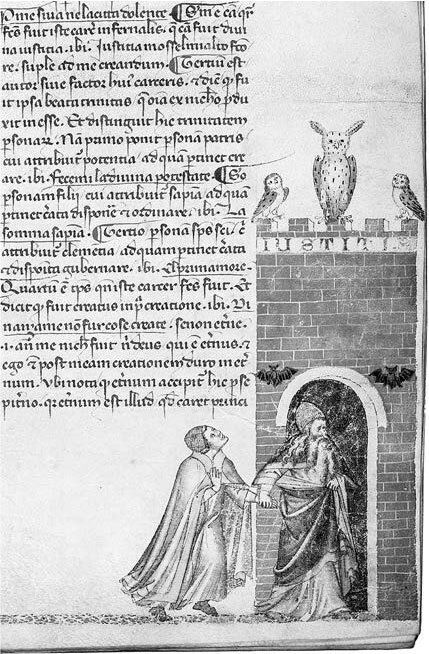 P me si va nela cicta dolente. ¶ Scḿ e cā qr̄
fcō fuit iste carc̄ infernalis. q̄ cā fuit diui
na iustitia. ibi. Iustitia mosse lmio alto fcto
re. suple ad me creandum. ¶ Tertiū est
autor siue factor huiꝰ carceris. & diē q̄ fu
it ipsa beata trinitas q̄ oīa ex nichō p̄du
xit in esse. Et distinguit hic trinitatem
p̄sonarꝝ. Nā primo ponit p̄sonā patris
cui attribuit᷑ potentia ad quā p̄tinet cre
are. ibi. Fecemi la diuina potestate. ¶ So
p̄sonam filii cui attribuit᷑ sapīa ad quā
p̄tinet c̄ata dispōne & ordinare. ibi. La
somma sapīa. ¶ Tertio p̄sonā sp̄s sc̄i. c̄
attribuit᷑ clemētia ad quam p̄tinet c̄ata
& disposita gubernare. ibi. El primamore.
Quartū ē tp̄s qn̄ iste carcer fc̄s fuit. Et
dicit q̄ fuit creatus in p̄ creatione. ibi. Di
nançame non fur cose create. se non etn̄e.
.i. ante me nichil fuit nͥ deus qui ē etn̄us. &
ego & post meam creationem duro in et
num. Ubi nota q̄ etn̄um accipit᷑ hic p̄ p̄se
pitno. qr̄ etn̄um est illud q̄d caret princi
IUSTITIA